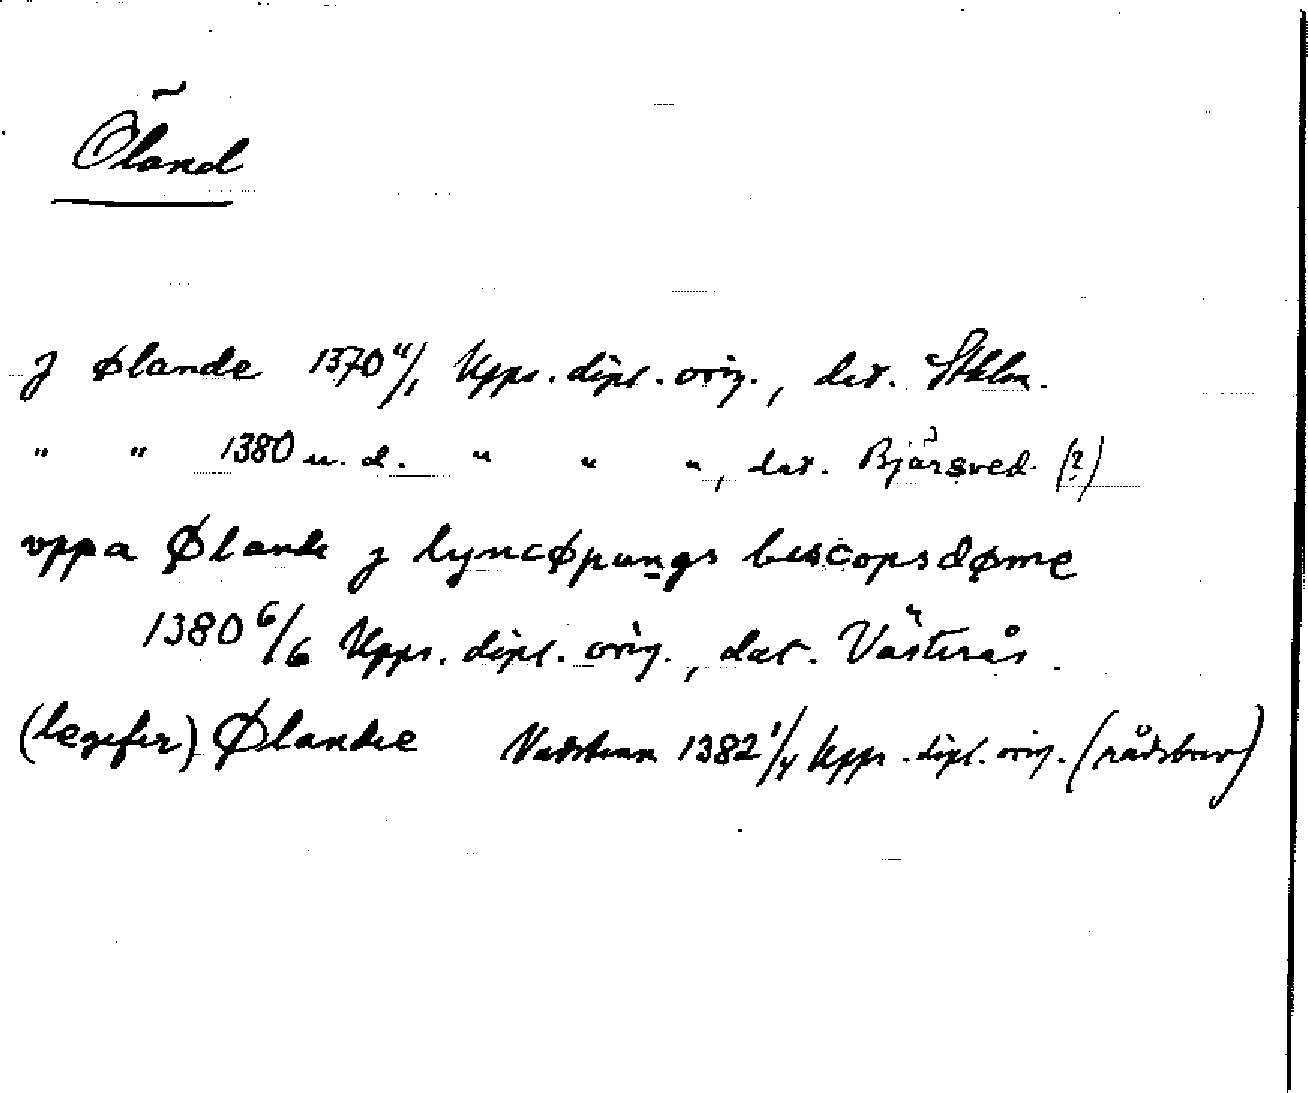 Öland
j ølande 1370 4/1 Upps. dipl. orig., dat. Sthlm.
" " 1380 u. d. " " ", dat. Bjärsved (?)
vppa Ølande j lyncøpungs bescopsdøme
1380 6/6 Upps. dipl. orig., dat. Västerås.
(legifer) Ølandie Vadstena 1382 1/4 Upps. dipl. orig. (rådsbrev)